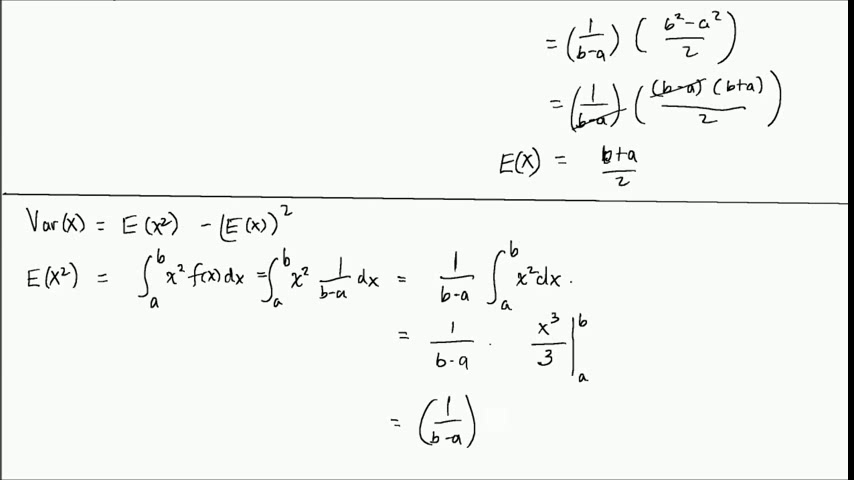 = (1/(b-a)) ((b²-a²)/2)
= (1/(b-a)) ((b-a)(b+a)/2)
E(X) = (b+a)/2
Var(X) = E(x²) - (E(x))²
E(X²) = ∫_a^b x² f(x)dx = ∫_a^b x² 1/(b-a) dx = 1/(b-a) ∫_a^b x² dx.
= 1/(b-a) · x³/3 |_a^b
= (1/(b-a))